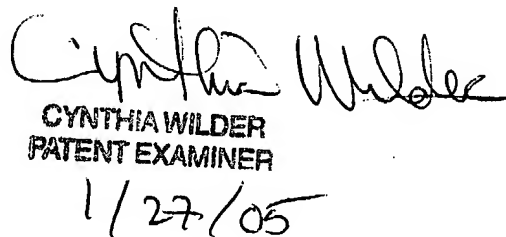 Cynthia Wilder
CYNTHIA WILDER
PATENT EXAMINER
1/27/05